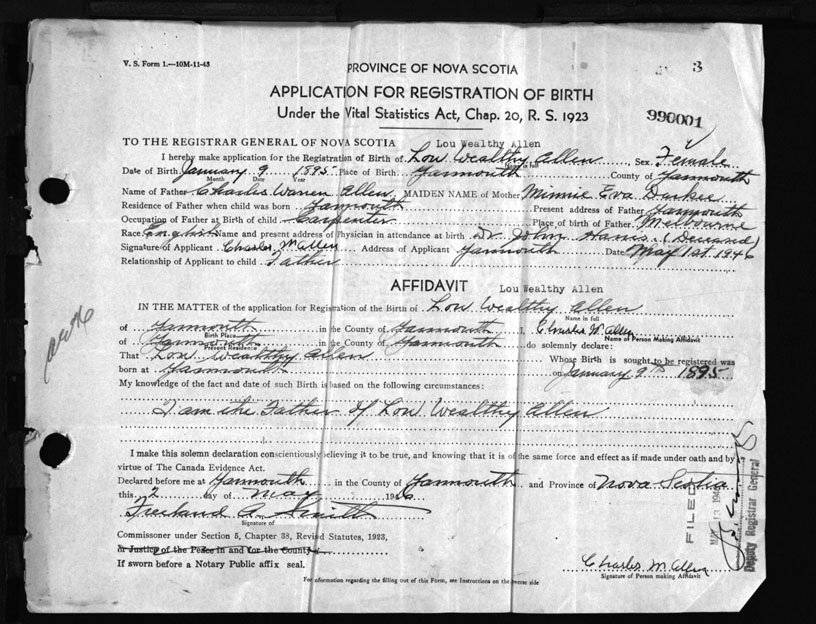 V. S. Form 1.—10M-11-43
3
PROVINCE OF NOVA SCOTIA
APPLICATION FOR REGISTRATION OF BIRTH
Under the Vital Statistics Act, Chap. 20, R. S. 1923
990001
TO THE REGISTRAR GENERAL OF NOVA SCOTIA Lou Wealthy Allen
I hereby make application for the Registration of Birth of Lou Wealthy Allen Sex Female
Name in full
Date of Birth January 9 1895 Place of Birth Yarmouth County of Yarmouth
Month Date Year
Name of Father Charles Warren Allen MAIDEN NAME of Mother Minnie Eva
Residence of Father when child was born Yarmouth Present address of Father Yarmouth
Occupation of Father at Birth of child Carpenter Place of birth of Father Melbourne
Race English Name and present address of Physician in attendance at birth Dr. John Harris (Deceased)
Signature of Applicant Charles W Allen Address of Applicant Yarmouth Date May 1st 1946
Relationship of Applicant to child Father
AFFIDAVIT Lou Wealthy Allen
IN THE MATTER of the application for Registration of the Birth of Lou Wealthy Allen
Name in full
of Yarmouth in the County of Yarmouth I, Charles W. Allen
Birth Place Name of Person Making Affidavit
of Yarmouth in the County of Yarmouth do solemnly declare:
Present Residence
That Lou Wealthy Allen Whose Birth is sought to be registered was
born at Yarmouth on January 9th 1895
My knowledge of the fact and date of such Birth is based on the following circumstances:
I am the Father of Lou Wealthy Allen
I make this solemn declaration conscientiously believing it to be true, and knowing that it is of the same force and effect as if made under oath and by
virtue of The Canada Evidence Act.
Declared before me at Yarmouth in the County of Yarmouth and Province of Nova Scotia
this 2 day of May 1946
Freeland A. Smith
Signature of
Commissioner under Section 5, Chapter 38, Revised Statutes, 1923,
or Justice of the Peace in and for the County
If sworn before a Notary Public affix seal.
Charles W Allen
Signature of Person making Affidavit
For information regarding the filling out of this Form, see Instructions on the reverse side
FILED
MAY 13 1946
Deputy Registrar General